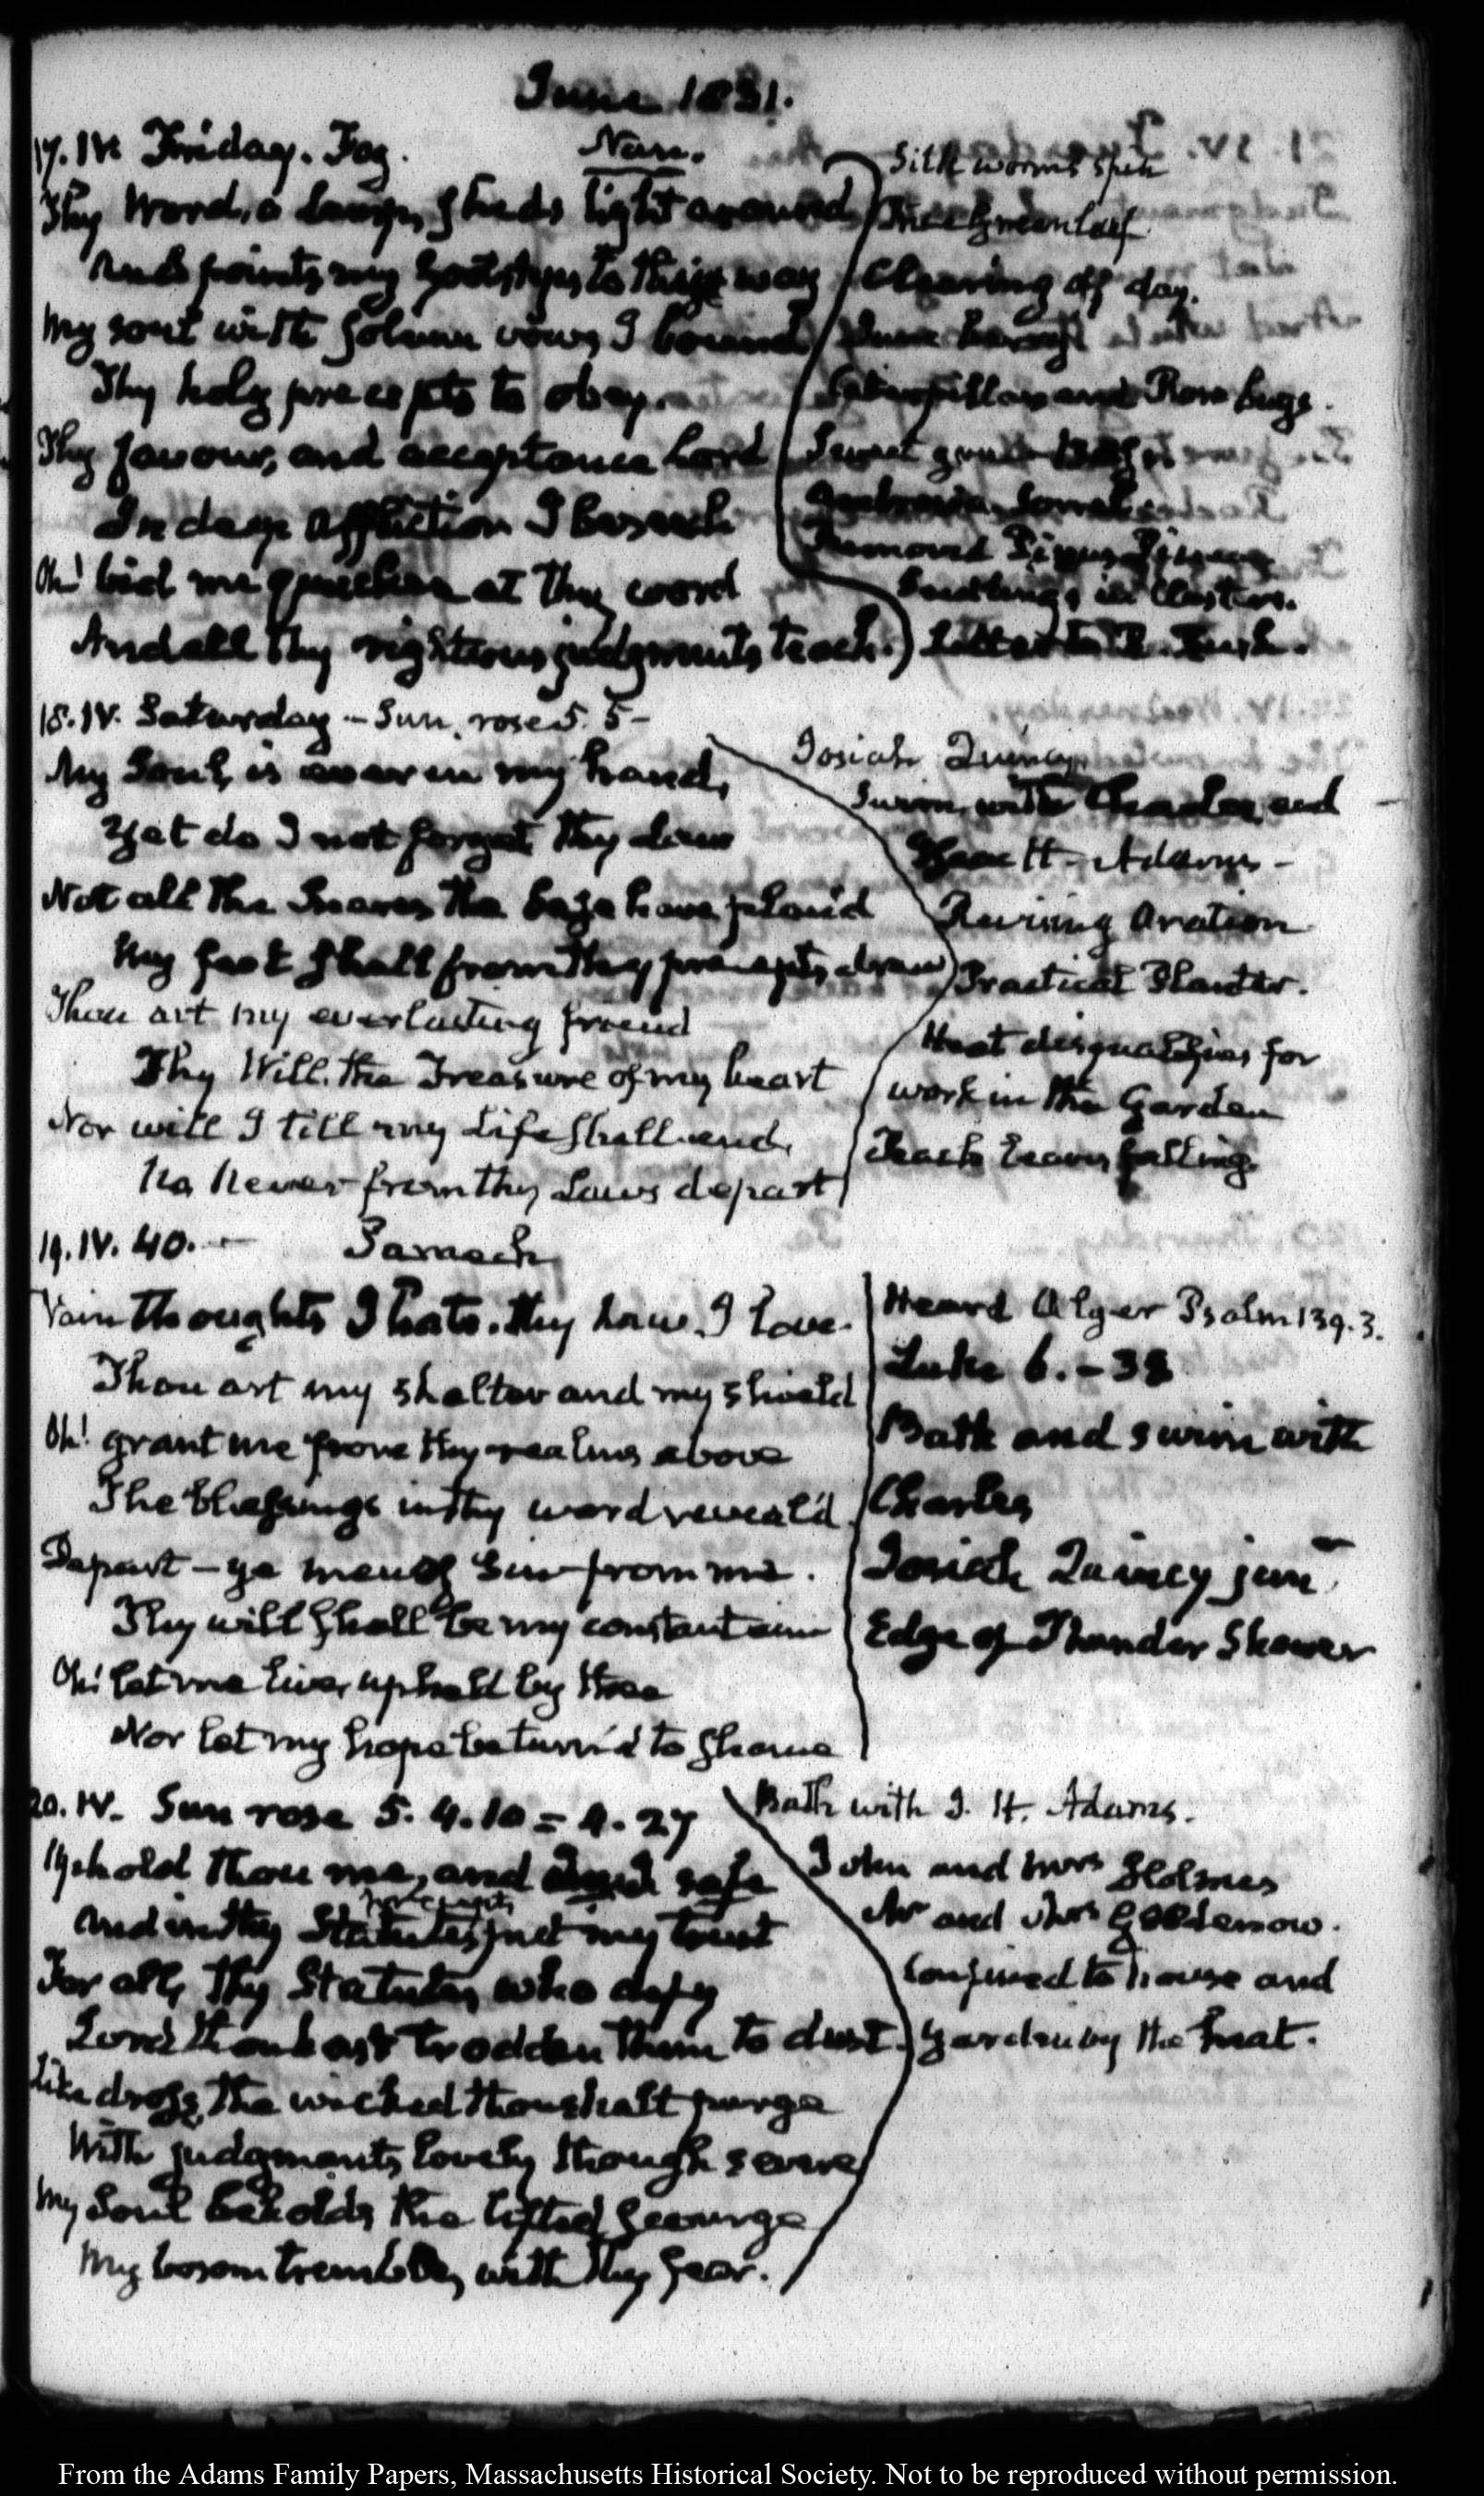 June 1831.
17. IV. Friday. Fog.
Nun.
Thy Word, a Lamp, sheds light around
And points my footsteps to thy way
My soul with solemn vows I bound
Thy holy precepts to obey.
Thy favour, and acceptance Lord
In deep affliction I beseech
Oh! bid me quicken at thy word
And all thy righteous judgments teach.
Silk worms spin
Greenleaf
Clearing off day.
Caterpillars and Rose bugs.
Sweet
Removed
Seedlings in clusters.
Letter to
18. IV. Saturday – Sun, rose 5. 5 –
My Soul, is ever in my hand,
Yet do I not forget thy Law
Not all the Snares the base have plann'd
My feet shall from thy precepts draw
Thou art my everlasting friend
Thy Will, the Treasure of my heart
Nor will I till my Life shall end,
No Never from thy Laws depart
Josiah Quincy.
Swim, with Charles and
Isaac H. Adams –
Revising Oration
Practical Planter.
Heat disqualifies for
work in the Garden
Peach Leaves falling.
19. IV. 40. –
Samech
Vain thoughts I hate. thy Law, I love.
Thou art my shelter and my shield
Oh! grant me from thy realms above
The blessings in thy word reveal'd.
Depart – ye men of Sin from me.
Thy will shall be my constant aim
Oh! let me live, upheld by thee
Nor let my hope be turn'd to shame
Heard Alger Psalm 139. 3.
Luke 6. – 38
Bath and swim with
Charles
Josiah Quincy junr
Edge of Thunder Shower
20. IV. Sun rose 5. 4. 10 = 4. 27
Uphold thou me, and safe
precepts
And in thy Statutes put my trust
For all, thy Statutes, who defy
Lord thou hast trodden them to dust.
Like dross, the wicked thou shalt purge
With judgments, lovely though severe
My Soul beholds the lifted scourge
My bosom trembles, with thy fear.
Bath with I. H. Adams.
John and Mrs Holmes
Mr and Mrs Goodenow.
Confined to house and
Garden by the heat.
From the Adams Family Papers, Massachusetts Historical Society. Not to be reproduced without permission.